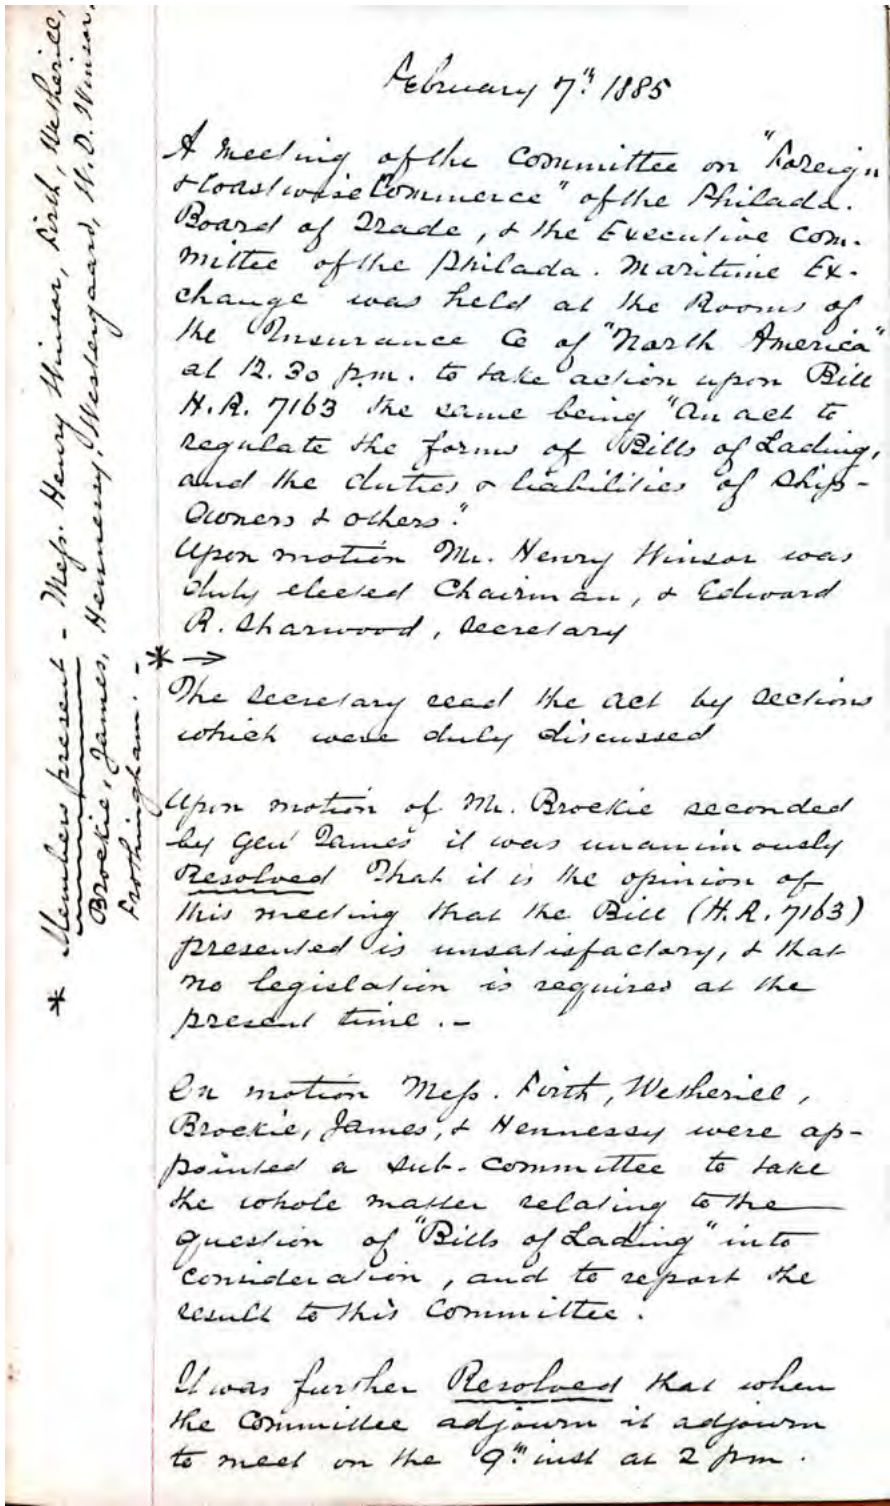 February 7th 1885
A meeting of the Committee on "Foreign
& Coastwise Commerce" of the Philada.
Board of Trade, & the Executive Com-
mittee of the Philada. Maritime Ex-
change was held at the Rooms of
the Insurance Co of "North America"
at 12.30 p.m. to take action upon Bill
H.R. 7163 the same being "An act to
regulate the forms of Bills of Lading,
and the duties & liabilities of Ship-
Owners & others".
Upon motion Mr. Henry Winsor was
duly elected Chairman, & Edward
R. Sharwood, Secretary
* →
The Secretary read the Act by Sections
which were duly discussed
Upon motion of Mr. Brockie seconded
by Genl James it was unanimously
Resolved That it is the opinion of
this meeting that the Bill (H.R. 7163)
presented is unsatisfactory, & that
no legislation is required at the
present time. -
On motion Mess. Firth, Wetherill,
Brockie, James, & Hennessy were ap-
pointed a Sub-Committee to take
the whole matter relating to the
question of "Bills of Lading" into
consideration, and to report the
result to this Committee.
It was further Resolved that when
the Committee adjourn it adjourn
to meet on the 9th inst at 2 pm.
* Members present - Mess. Henry Winsor, Firth, Wetherill,
Brockie, James, Hennessy, Westergaard, W.D. Winsor,
Frothingham. -